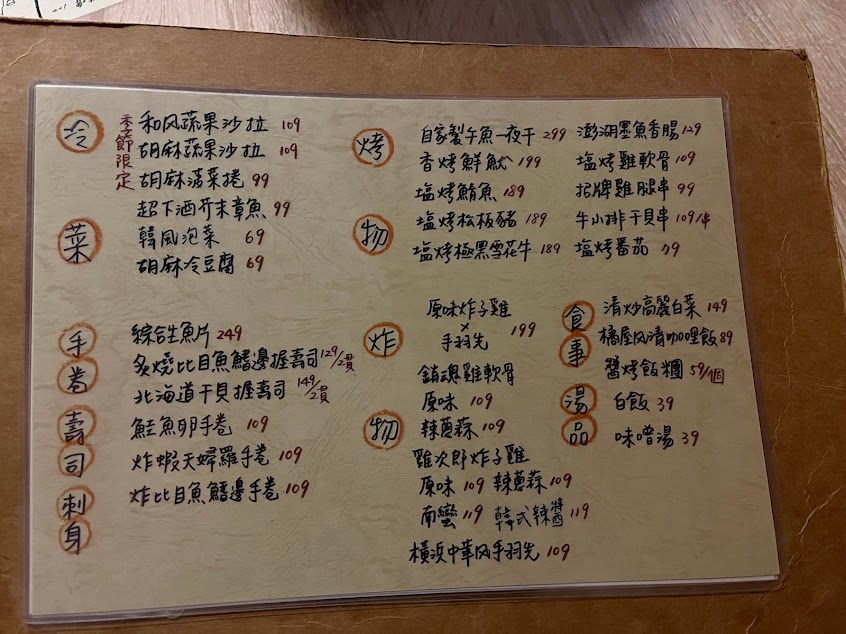 冷菜
季節限定
和风蔬果沙拉 109
胡麻蔬果沙拉 109
胡麻菠菜捲 99
超下酒芥末章魚 99
韓風泡菜 69
胡麻冷豆腐 69
烤物
自家製午魚一夜干 299
香烤鮮魷 199
塩烤鯖魚 189
塩烤松板豬 189
塩烤極黑雪花牛 189
澎湖墨魚香腸 129
塩烤雞軟骨 109
招牌雞腿串 99
牛小排干貝串 109/串
塩烤番茄 79
手卷壽司刺身
綜合生魚片 249
炙燒比目魚鰭邊握壽司 129/2貫
北海道干貝握壽司 149/2貫
鮭魚卵手卷 109
炸蝦天婦羅手卷 109
炸比目魚鰭邊手卷 109
炸物
原味炸子雞
×
手羽先 199
銷魂雞軟骨
原味 109
辣蔥蒜 109
雞次郎炸子雞
原味 109 辣蔥蒜 109
南蠻 119 韓式辣醬 119
橫浜中華风手羽先 109
食事湯品
清炒高麗白菜 149
橘屋风清咖哩飯 89
醬烤飯糰 59/個
白飯 39
味噌湯 39